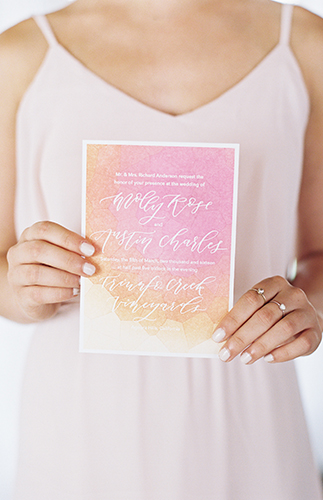 Mr. & Mrs. Richard Anderson request the
honor of your presence at the wedding of
Molly Rose
and
Austin Charles
Saturday, the 20th of March, two thousand and sixteen
at half past five o'clock in the evening
Creek
Vineyards